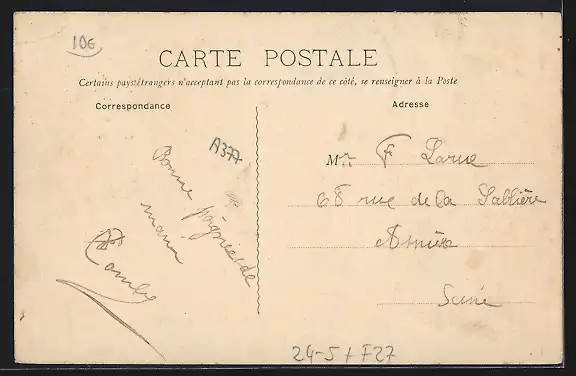 10€
CARTE POSTALE
Certains pays étrangers n'acceptant pas la correspondance de ce côté, se renseigner à la Poste
Correspondance
Adresse
A377
Bonne poignée de
main
Mr F Larue
68 rue de la Sablière
Asnière
Seine
24-5 + F27